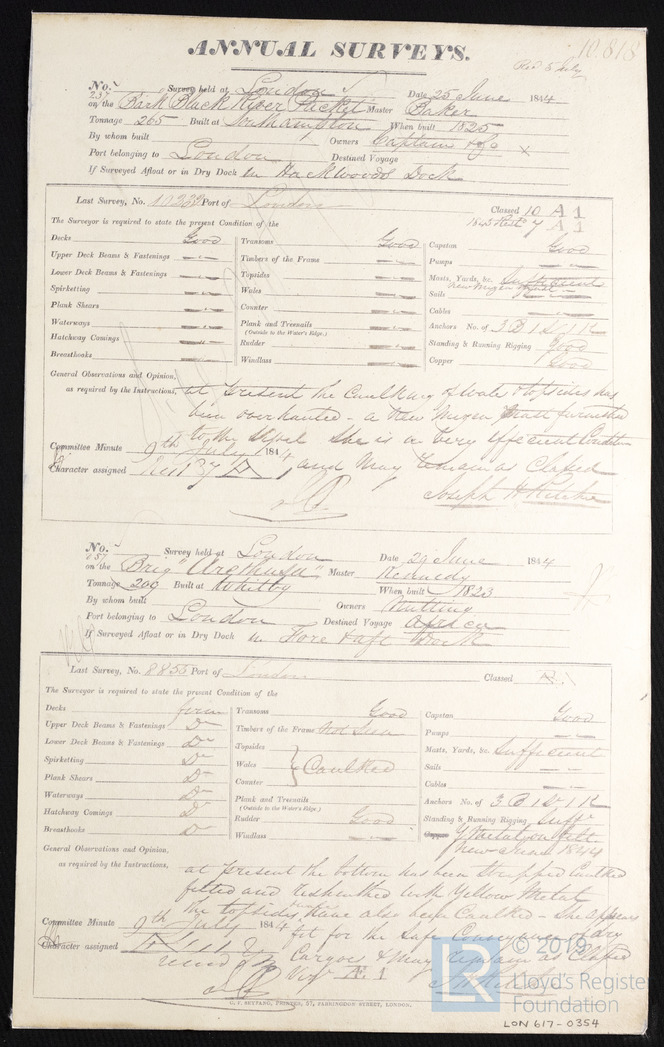 ANNUAL SURVEYS.
10,818
Red 5 July
No. 237 Survey held at London Date 25 June 1844
on the Bark "Black River Packet" Master Baker
Tonnage 265 Built at Southampton When built 1825
By whom built Owners Captain & Co
Port belonging to London Destined Voyage
If Surveyed Afloat or in Dry Dock in Hackwoods Dock
Last Survey, No. 10233 Port of London Classed 10 A 1
The Surveyor is required to state the present Condition of the 7 A 1
Decks Good Transoms Good Capstan Good
Upper Deck Beams & Fastenings Timbers of the Frame Pumps
Lower Deck Beams & Fastenings Topsides Masts, Yards, &c. Sufficient
Spirketting Wales Sails
Plank Shears Counter Cables
Waterways Plank and Treenails (Outside to the Water's Edge.) Anchors No. of 3 B 1 S 1 K
Hatchway Comings Rudder Standing & Running Rigging Good
Breasthooks Windlass Copper Good
General Observations and Opinion,
as required by the Instructions, at present the Caulking of Wales & topsides has
been overhauled - a new Mizen Mast furnished
to the Vessel She is in very efficient Condition
Committee Minute 9th July 1844
Character assigned and May remain as Classed
Joseph H Ritchie
No. 757 Survey held at London Date 29 June 1844
on the Brig "Arethusa" Master Kennedy
Tonnage 209 Built at Whitby When built 1823
By whom built Owners Nutting
Port belonging to London Destined Voyage Africa
If Surveyed Afloat or in Dry Dock in Fore & aft Dock
Last Survey, No. 8855 Port of London Classed
The Surveyor is required to state the present Condition of the
Decks firm Transoms Good Capstan Good
Upper Deck Beams & Fastenings Do Timbers of the Frame Not Seen Pumps
Lower Deck Beams & Fastenings Do Topsides Masts, Yards, &c. Sufficient
Spirketting Do Wales Caulked Sails
Plank Shears Do Counter Cables
Waterways Do Plank and Treenails (Outside to the Water's Edge.) Anchors No. of 3 B 1 S 1 K
Hatchway Comings Do Rudder Good Standing & Running Rigging Sufft
Breasthooks Do Windlass Y Metal on Felt
new June 1844
General Observations and Opinion,
as required by the Instructions, at present the bottom has been stripped Caulked
felted and resheathed with Yellow Metal
the topsides have also been Caulked - She appears
Committee Minute 9th July 1844 fit for the Safe Conveyance of dry
Character assigned Cargoes & May remain as Classed
Æ 1
G. F. SEYFANG, PRINTER, 57, FARRINGDON STREET, LONDON.
© 2019
LR
Lloyd's Register
Foundation
LON 617-0354